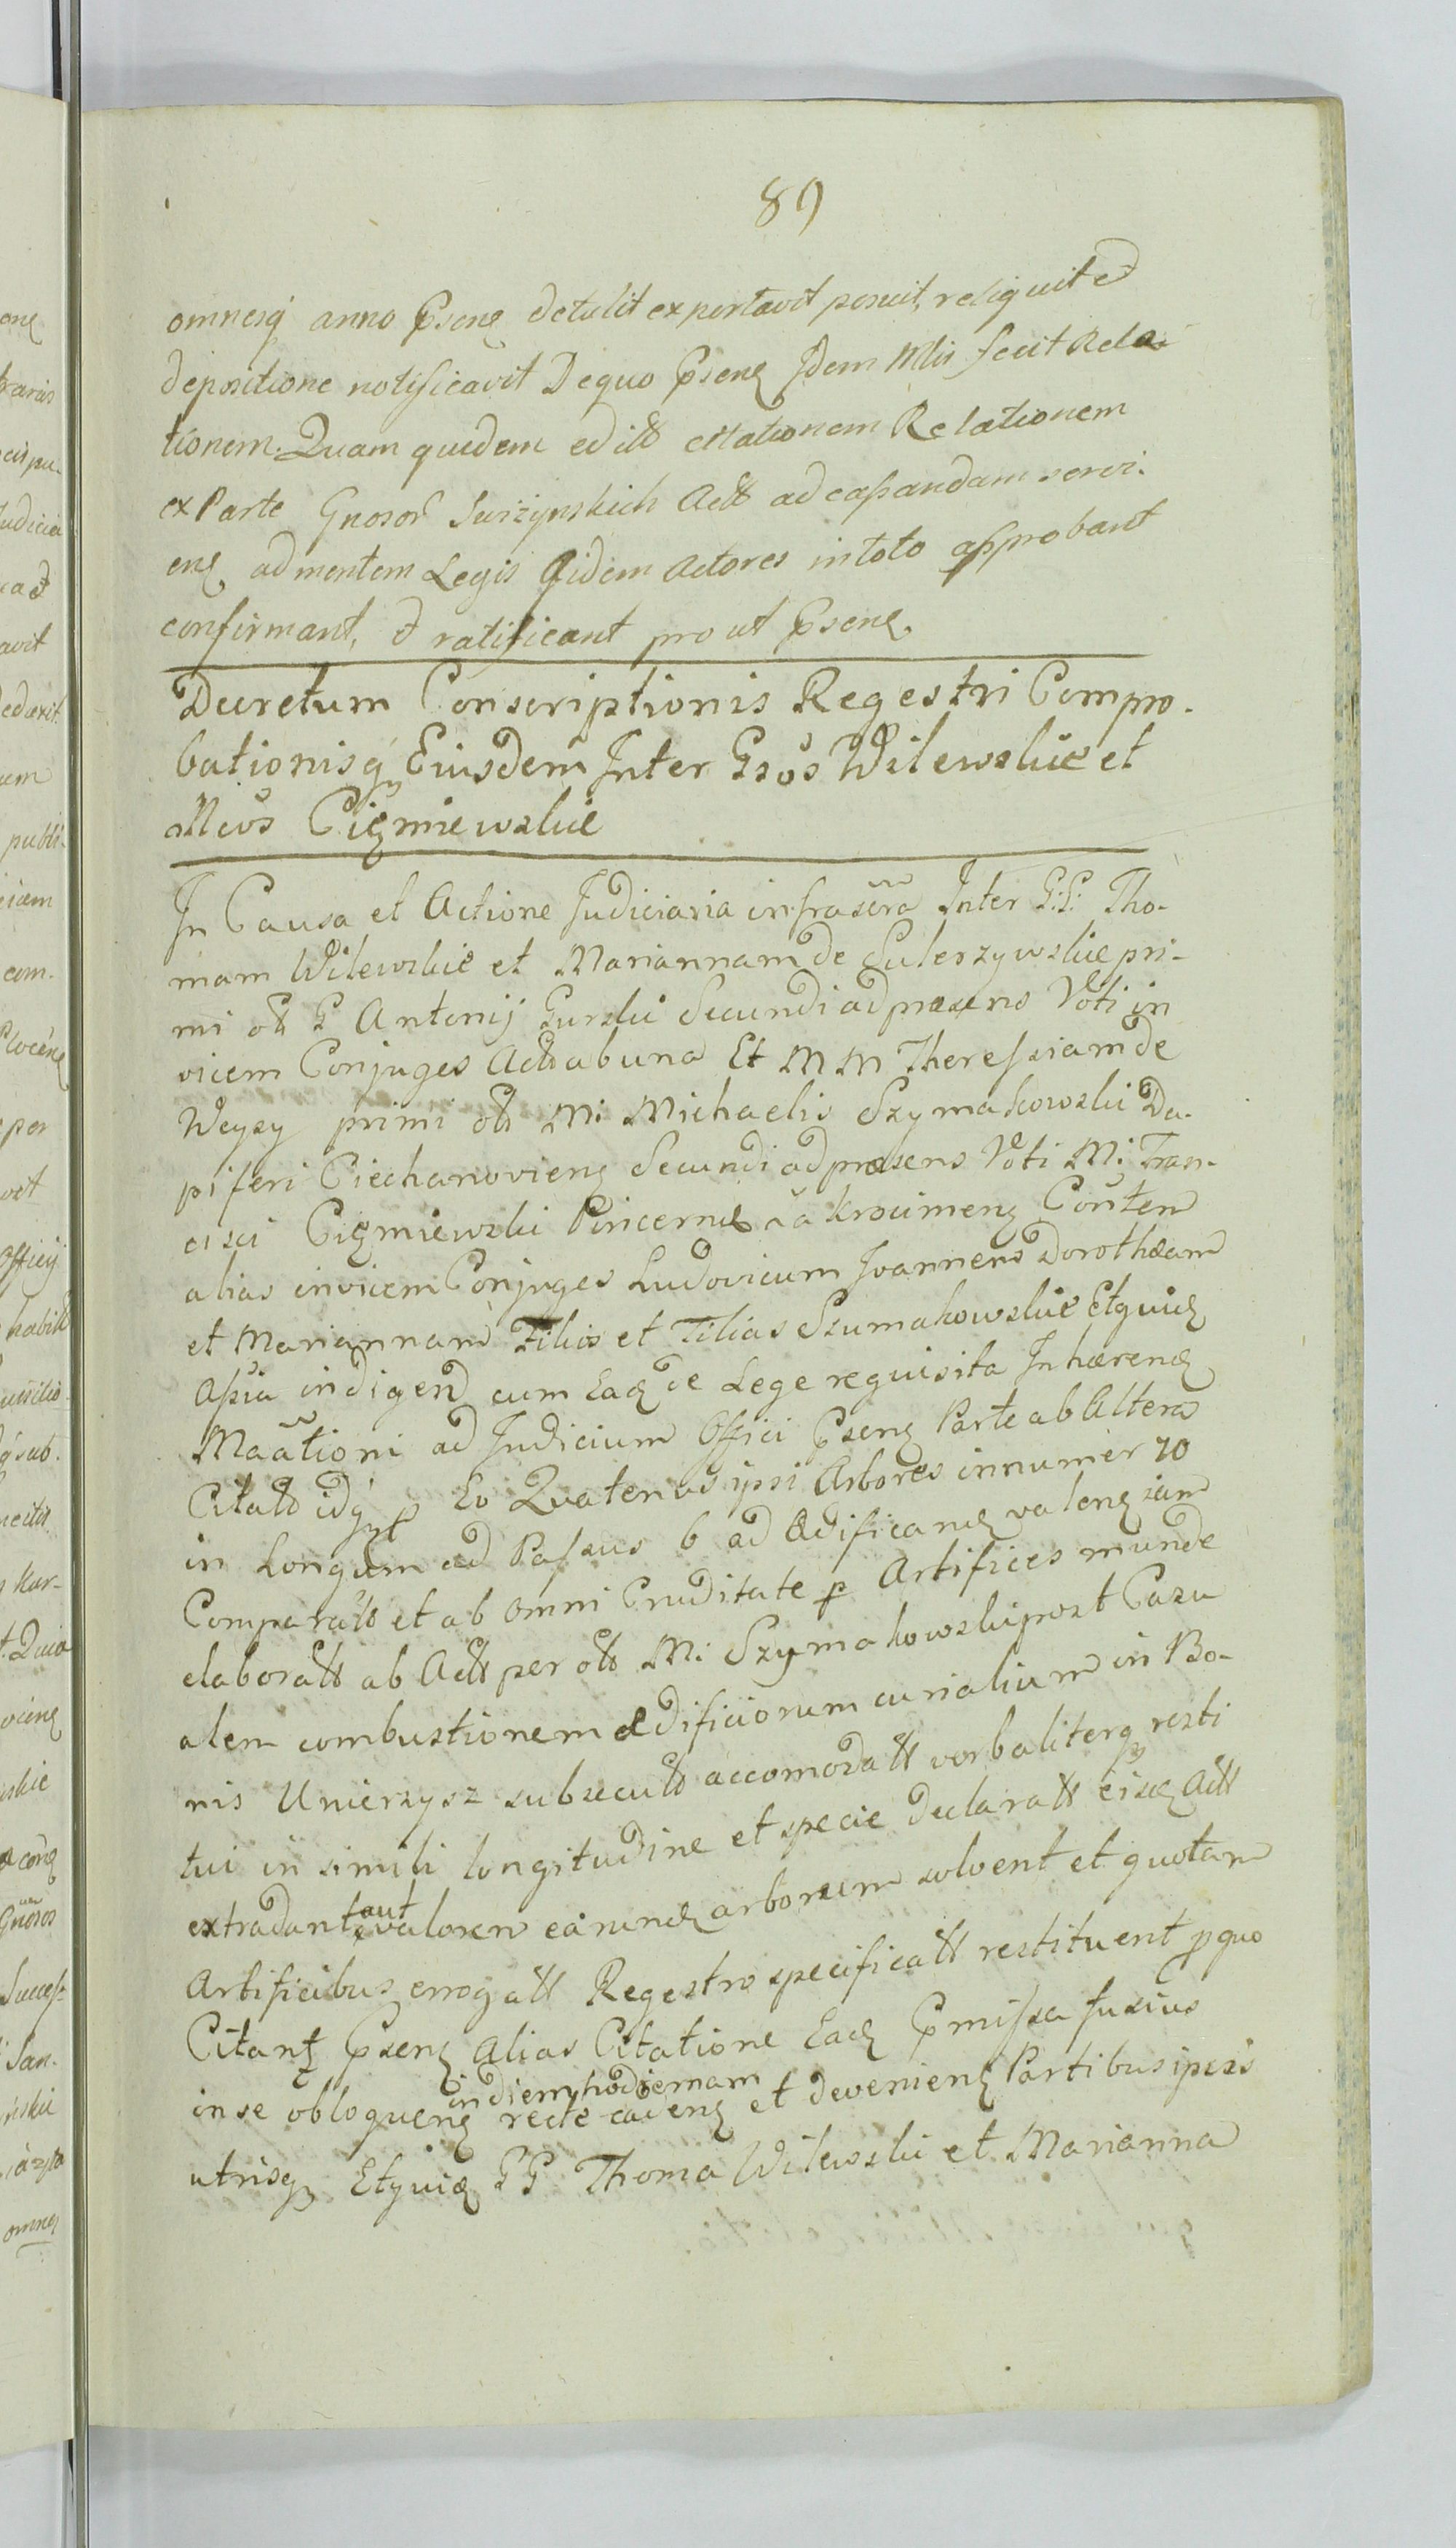 89
omnesq anno Psenę detulit exportavit posuit, reliquit et
depositione notificavit De quo Psenę Idem Mlis fecit Rela
tionem. Quam quidem citationem Relationem
ex Parte Gnosor Swizynskich Actt ad cassandam servi-
enę ad mentem Legis Actores in toto approbant
confirmant, et ratificant pro ut Psenę.
Decretum Conscriptionis Regestri Compro-
bationisq Eiusdem Inter Gsos Wilewskie et
Mcos Cięmniewskie
In Causa et Actione Judiciaria infrascra Inter G: G: Tho-
mam Wilewskie et Mariannam de Sulerzywskie pri-
mi ott G Antonij Gurski Secundi ad præsens Voti in
vicem Conjuges Actt ab una Et M M Theressiam de
Weysy primi ott M: Michaelis Szymakowski Da-
piferi Ciechanovienę Secundi ad præsens Voti M: Fran-
cisci Cięmiewski Pincernæ Conten
alias invicem Conjuges Ludovicum Joannem Dorotheam
et Mariannam Filios et Filias Szumakowskie Etquię
Assia indigen cum Eaę de Lege requisita Inhærenę
Maationi ad Judicium Offici Psenę Parte ab Altera
Citatt idq p Eo Quatenus ipsi Arbores in numer 70
in Longum ad Passus 6 ad Ædificanę valenę iam
Comparatt et ab omni Cruditate p Artifices munde
elaboratt ab Actt per ott M: Szymakowski post Casu
alem combustionem ædificiorum curialium in Bo-
nis Unierzysz subsecutt accomodatt verbaliterq resti
tui in simili longitudine et specie declaratt eisdę Actt
extradant aut valorem earunę arborum solvent et quotam
Artificibus errogatt Regestro specificatt restituent p quo
Citantę Psenę Alias Citatione Eaę Pmissa fusius
in se obloquenę in diem hodiernam recte cadenę et devenienę Partibus ipsis
utrisq Etquię G G Thoma Wilewski et Marianna